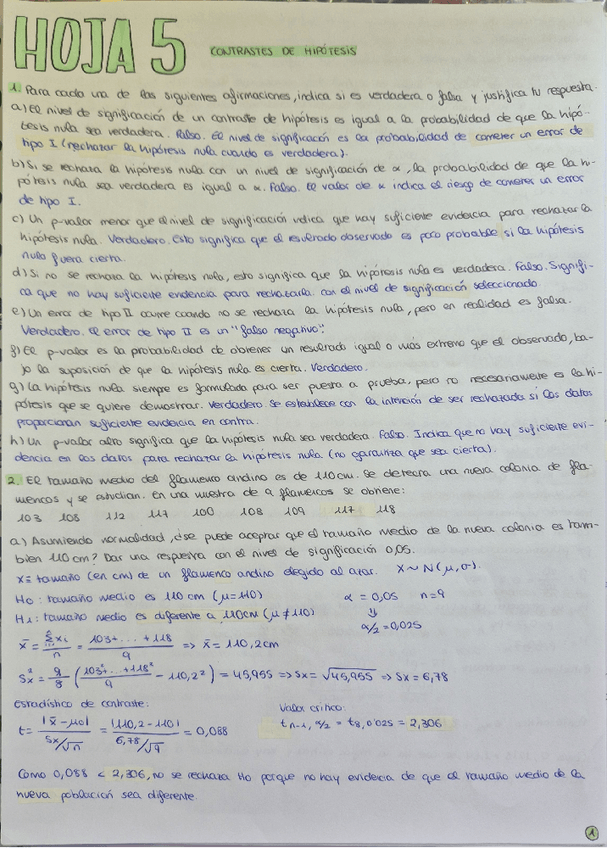 HOJA 5 CONTRASTES DE HIPÓTESIS
1. Para cada una de las siguientes afirmaciones, indica si es verdadera o falsa y justifica tu respuesta.
a) El nivel de significación de un contraste de hipótesis es igual a la probabilidad de que la hipó-
tesis nula sea verdadera. Falso. El nivel de significación es la probabilidad de cometer un error de
tipo I (rechazar la hipótesis nula cuando es verdadera).
b) Si se rechaza la hipótesis nula con un nivel de significación de α, la probabilidad de que la hi-
pótesis nula sea verdadera es igual a α. Falso. El valor de α indica el riesgo de cometer un error
de tipo I.
c) Un p-valor menor que el nivel de significación indica que hay suficiente evidencia para rechazar la
hipótesis nula. Verdadero. Esto significa que el resultado observado es poco probable si la hipótesis
nula fuera cierta.
d) Si no se rechaza la hipótesis nula, esto significa que la hipótesis nula es verdadera. Falso. Signifi-
ca que no hay suficiente evidencia para rechazarla con el nivel de significación seleccionado.
e) Un error de tipo II ocurre cuando no se rechaza la hipótesis nula, pero en realidad es falsa.
Verdadero. El error de tipo II es un "falso negativo".
f) El p-valor es la probabilidad de obtener un resultado igual o más extremo que el observado, ba-
jo la suposición de que la hipótesis nula es cierta. Verdadero.
g) La hipótesis nula siempre es formulada para ser puesta a prueba, pero no necesariamente es la hi-
pótesis que se quiere demostrar. Verdadero. Se establece con la intención de ser rechazada si los datos
proporcionan suficiente evidencia en contra.
h) Un p-valor alto significa que la hipótesis nula sea verdadera. Falso. Indica que no hay suficiente evi-
dencia en los datos para rechazar la hipótesis nula (no garantiza que sea cierta).
2. El tamaño medio del flamenco andino es de 110 cm. Se detecta una nueva colonia de fla-
mencos y se estudian. En una muestra de 9 flamencos se obtiene:
103 108 112 117 100 108 109 117 118
a) Asumiendo normalidad, ¿se puede aceptar que el tamaño medio de la nueva colonia es tam-
bien 110 cm? Dar una respuesta con el nivel de significación 0,05.
X = tamaño (en cm) de un flamenco andino elegido al azar. X ~ N(μ, σ).
H0: tamaño medio es 110 cm (μ=110) α = 0,05 n=9
H1: tamaño medio es diferente a 110cm (μ≠110) ⇓ α/2 = 0,025
x̄ = Σxi/n = 103+...+118/9 => x̄ = 110,2 cm
Sx² = 9/8 (103²+...+118²/9 - 110,2²) = 45,955 => Sx = √45,955 => Sx = 6,78
Estadístico de contraste: Valor crítico:
t = |x̄ - μ0| / Sx/√n = |110,2 - 110| / 6,78/√9 = 0,088 t n-1, α/2 = t8, 0'025 = 2,306
Como 0,088 < 2,306, no se rechaza H0 porque no hay evidencia de que el tamaño medio de la
nueva población sea diferente.
1